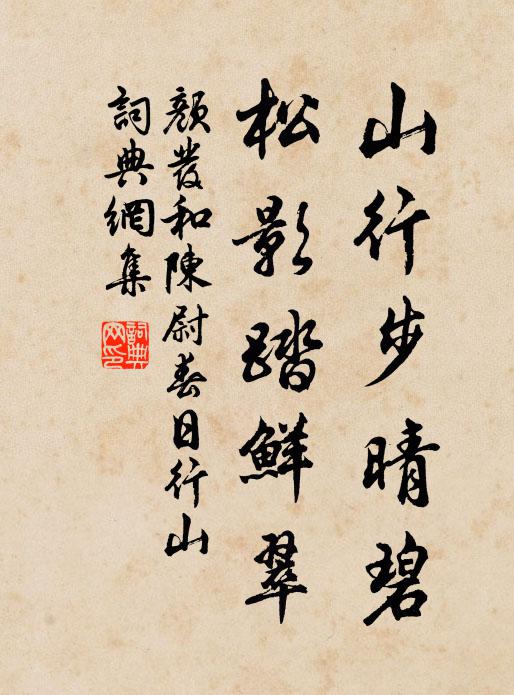 山行步晴碧
松影踏鮮翠
顏發和陳尉春日行山
詞典網集
詞典網印